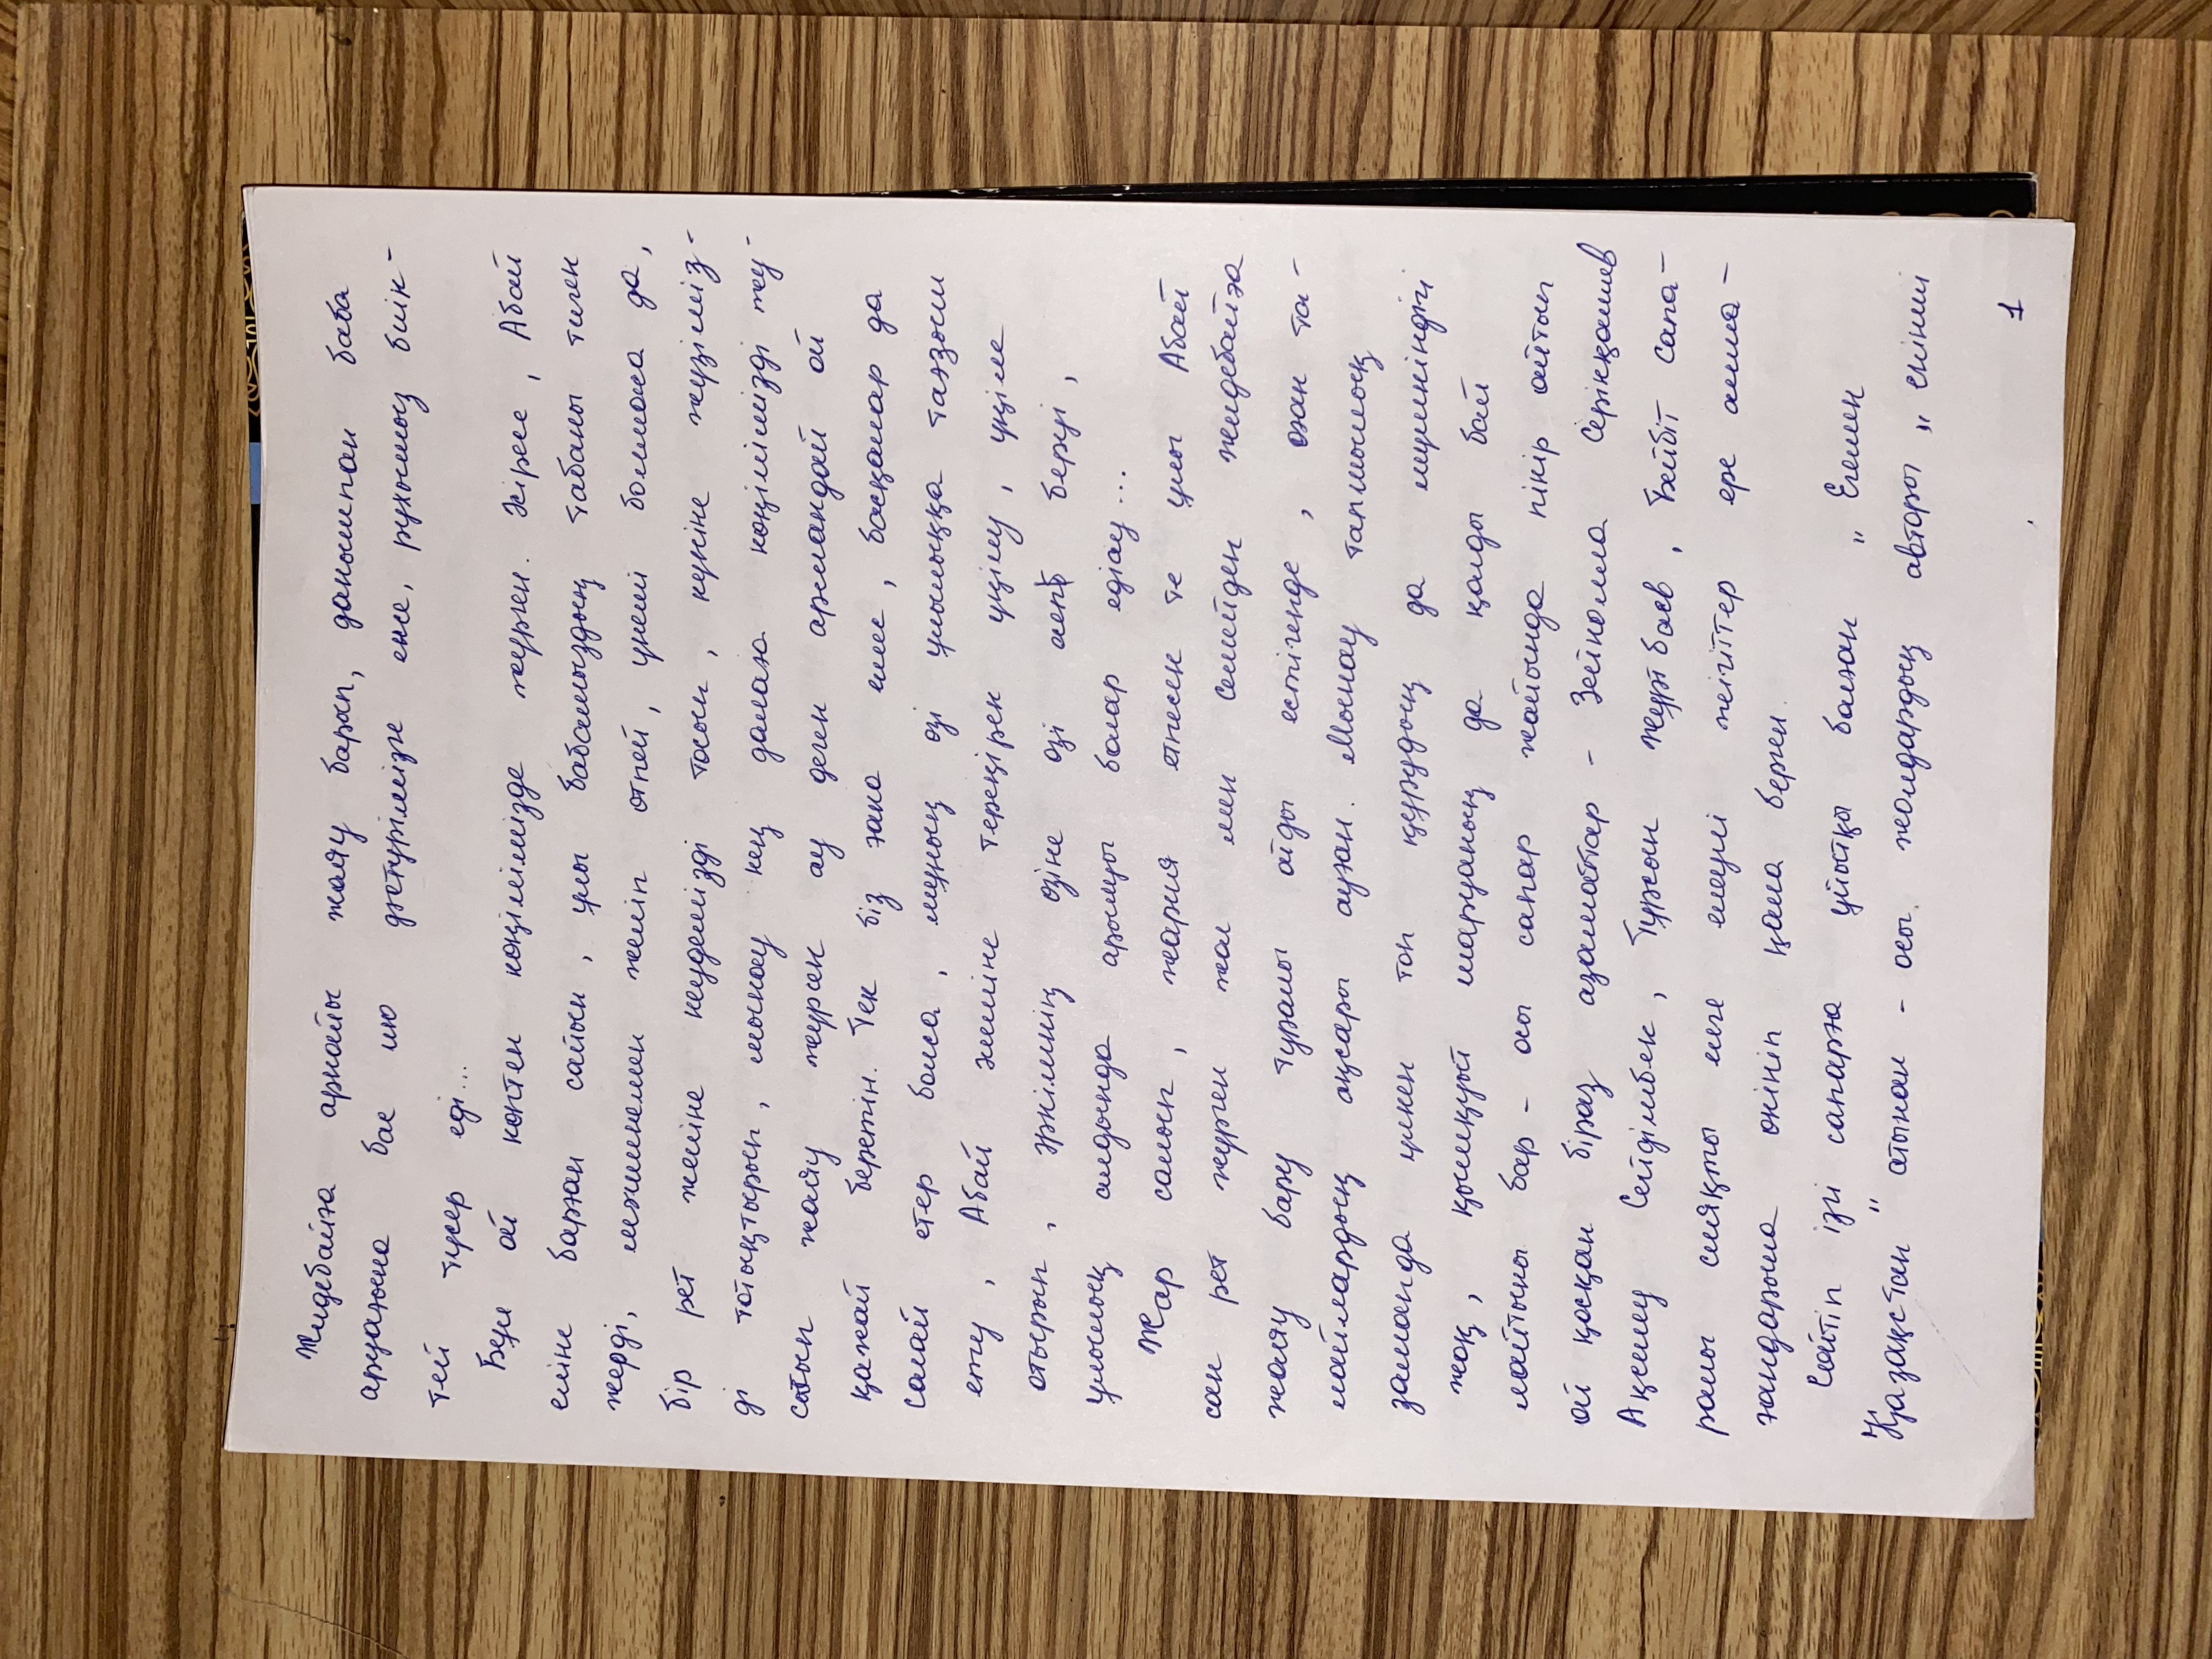 Жидебайға арнайы жаяу барып, данышпан баба
аруағына бас ию дәстүрімізге енсе, рухымыз биік-
тей түсер еді...
Бұл ой көптен көңілімізде жүрген. Әсіресе, Абай
еліне барған сайын, ұлы бабамыздың табаны тиген
жерді, мәшинемен желіп өтпей, үнемі болмаса да,
бір рет желіне кеудемізді тосып, күніне жүзіміз-
ді тотықтырып, мынау кең далаға көңілімізді жу-
сатып жаяу жүрсек ау деген армандай ой
қажай беретін. Тек біз ғана емес, басқалар да
солай етер болса, мұның өзі ұлылыққа тағзым
ету, Абай әлеміне тереңірек үңілу, үңіле
отырып, әркімнің өзіне өзі есеп беруі,
ұлылық алдында арылуы болар едіау...
Жар салып, жария етпесек те ұлы Абай
сан рет жүрген жол мен Семейден Жидебайға
жаяу бару туралы ойды естігенде, оған та-
лайлардың аңсары ауған. Мынау тапшылық
заманда үлкен топ құрудың да мүмкіндігі
жоқ, қымқуыт шаруаның да қолды бай
лайтыны бар - осы сапар жайында пікір айтып
ой қосқан біраз азаматтар - Зейнолла Серікқалиев
Ақселеу Сейдімбек, Тұрсын Жұртбаев, Бейбіт Сапа-
ралы сияқты елге елеулі жігіттер ере алма-
ғандарына өкініп қала берген.
Сөйтіп ізгі сапарға ұйытқы болған „Егемен
Қазақстан" атынан - осы жолдардың авторы „ екінші
1